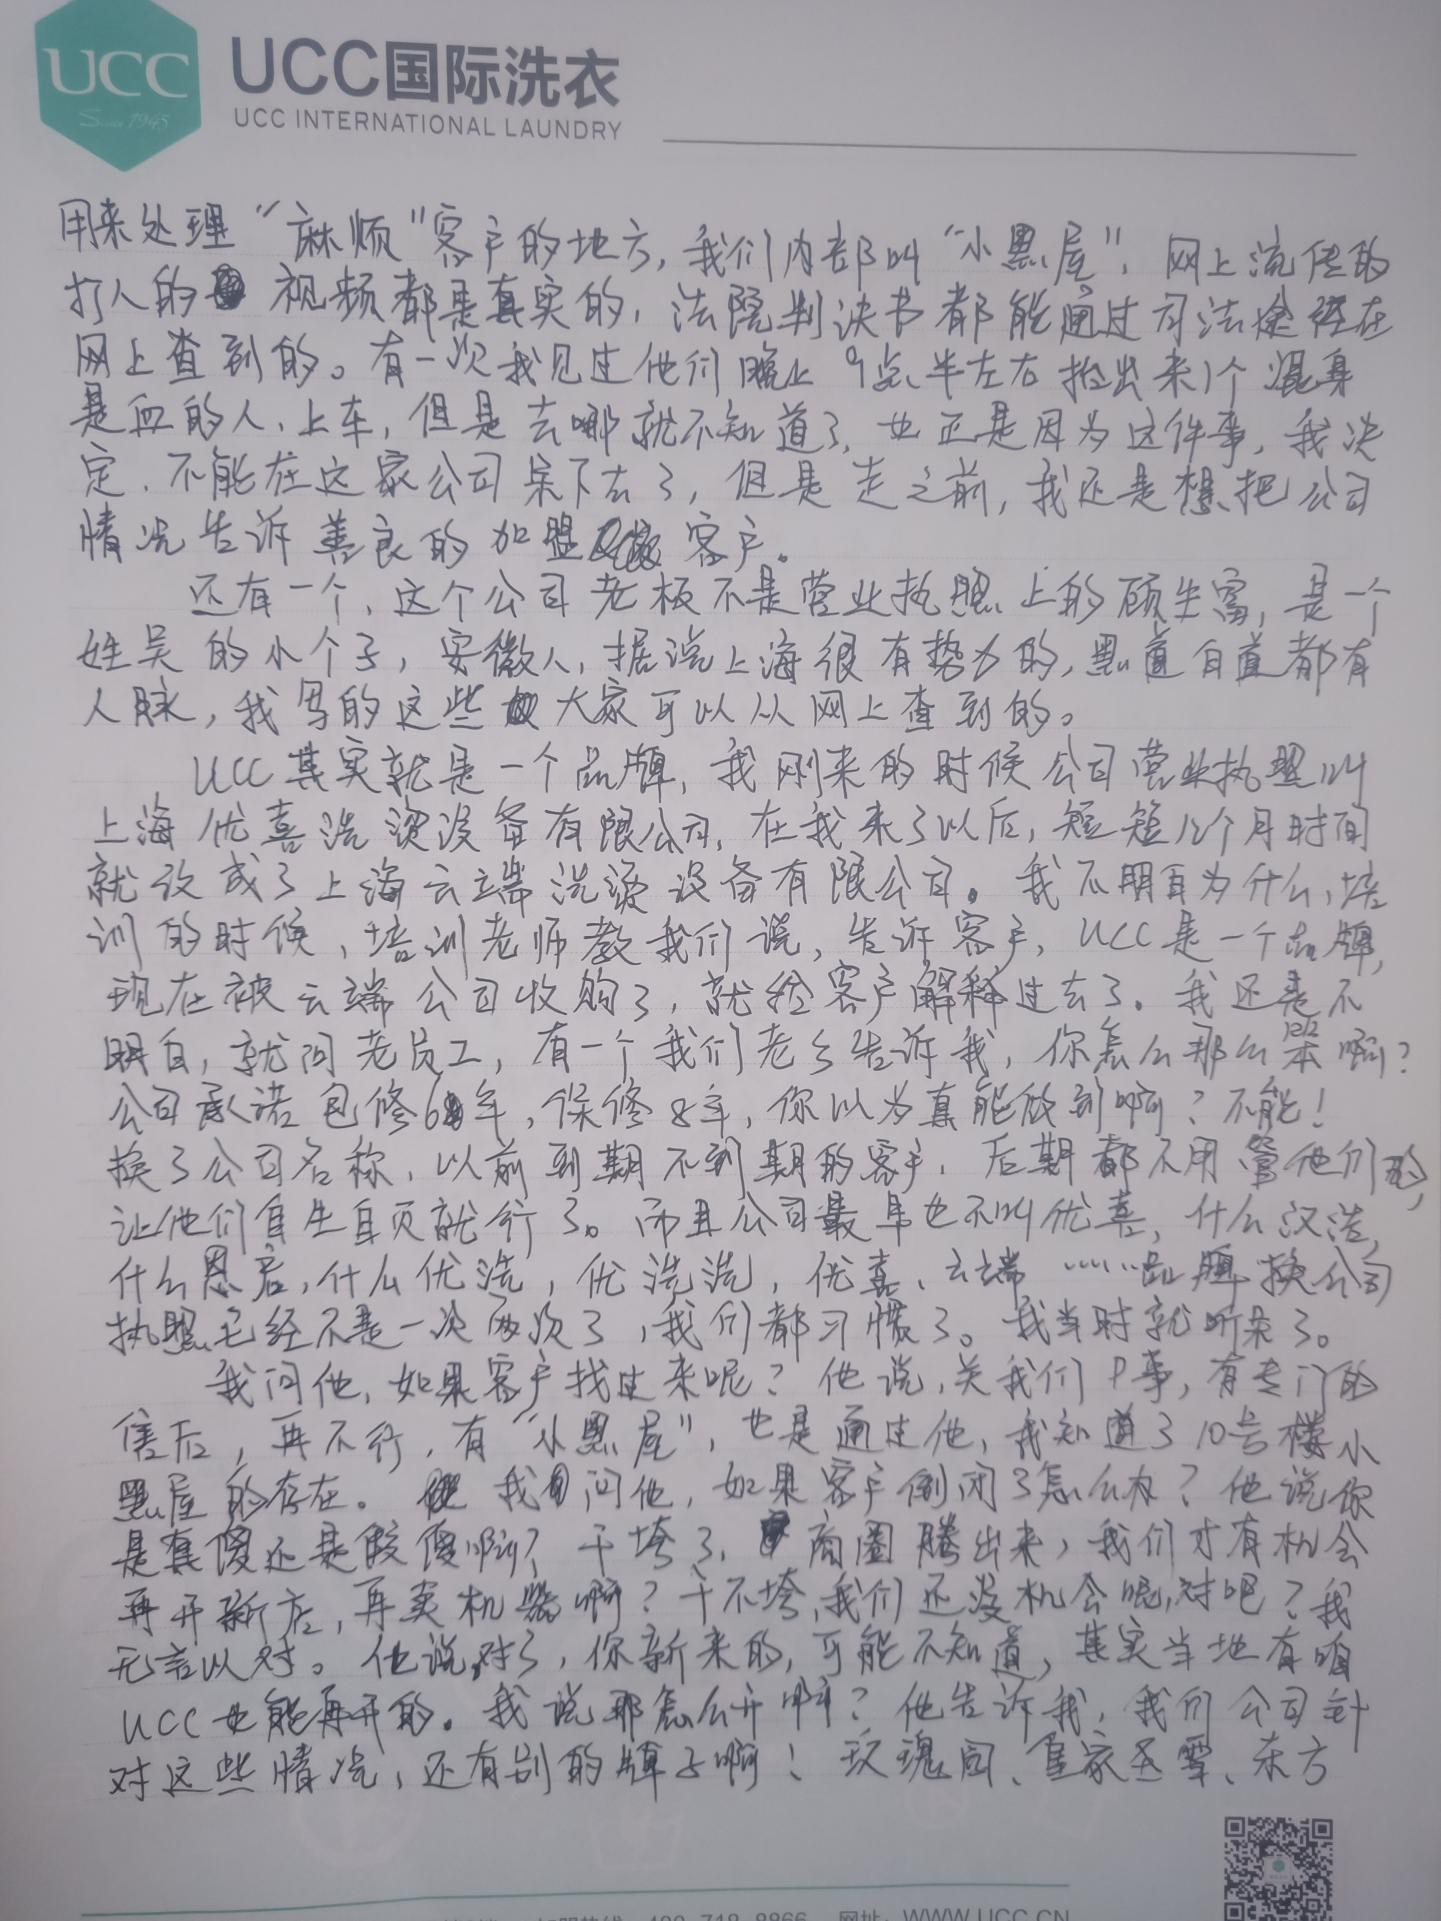 UCC
Since 1945
UCC国际洗衣
UCC INTERNATIONAL LAUNDRY
用来处理“麻烦”客户的地方,我们内部叫“小黑屋”,网上流传的
打人的视频都是真实的,法院判决书都能通过司法途径在
网上查到的。有一次我见过他们晚上9点半左右抬出来1个混身
是血的人,上车,但是去哪就不知道了,也正是因为这件事,我决
定,不能在这家公司呆下去了,但是走之前,我还是想把公司
情况告诉善良的加盟客户。
还有一个,这个公司老板不是营业执照上的顾生富,是一个
姓吴的小个子,安徽人,据说上海很有势力的,黑道白道都有
人脉,我写的这些大家可以从网上查到的。
UCC其实就是一个品牌,我刚来的时候公司营业执照叫
上海优喜洗涤设备有限公司,在我来了以后,短短几个月时间
就改成了上海云端洗涤设备有限公司。我不明白为什么,培
训的时候,培训老师教我们说,告诉客户,UCC是一个品牌,
现在被云端公司收购了,就给客户解释过去了。我还是不
明白,就问老员工,有一个我们老乡告诉我,你怎么那么笨啊?
公司承诺包修6年,保修8年,你以为真能做到啊?不能!
换了公司名称,以前到期不到期的客户,后期都不用管他们的,
让他们自生自灭就行了。而且公司最早也不叫优喜,什么汉洁,
什么恩启,什么优洗,优洗洗,优喜、云端……品牌换公司
执照已经不是一次两次了,我们都习惯了。我当时就听呆了。
我问他,如果客户找过来呢?他说,关我们P事,有专门的
售后,再不行,有“小黑屋”,也是通过他,我知道了10号楼小
黑屋的存在。我问他,如果客户倒闭了怎么办?他说你
是真傻还是假傻啊?干垮了,商圈腾出来,我们才有机会
再开新店,再卖机器啊?干不垮,我们还没机会呢,对吧?我
无言以对。他说,对了,你新来的,可能不知道,其实当地有咱
UCC也能再开的。我说那怎么开啊?他告诉我,我们公司针
对这些情况,还有别的牌子啊!玫瑰园、皇家圣雪、东方
400-718-8866 网址:WWW.UCC.CN